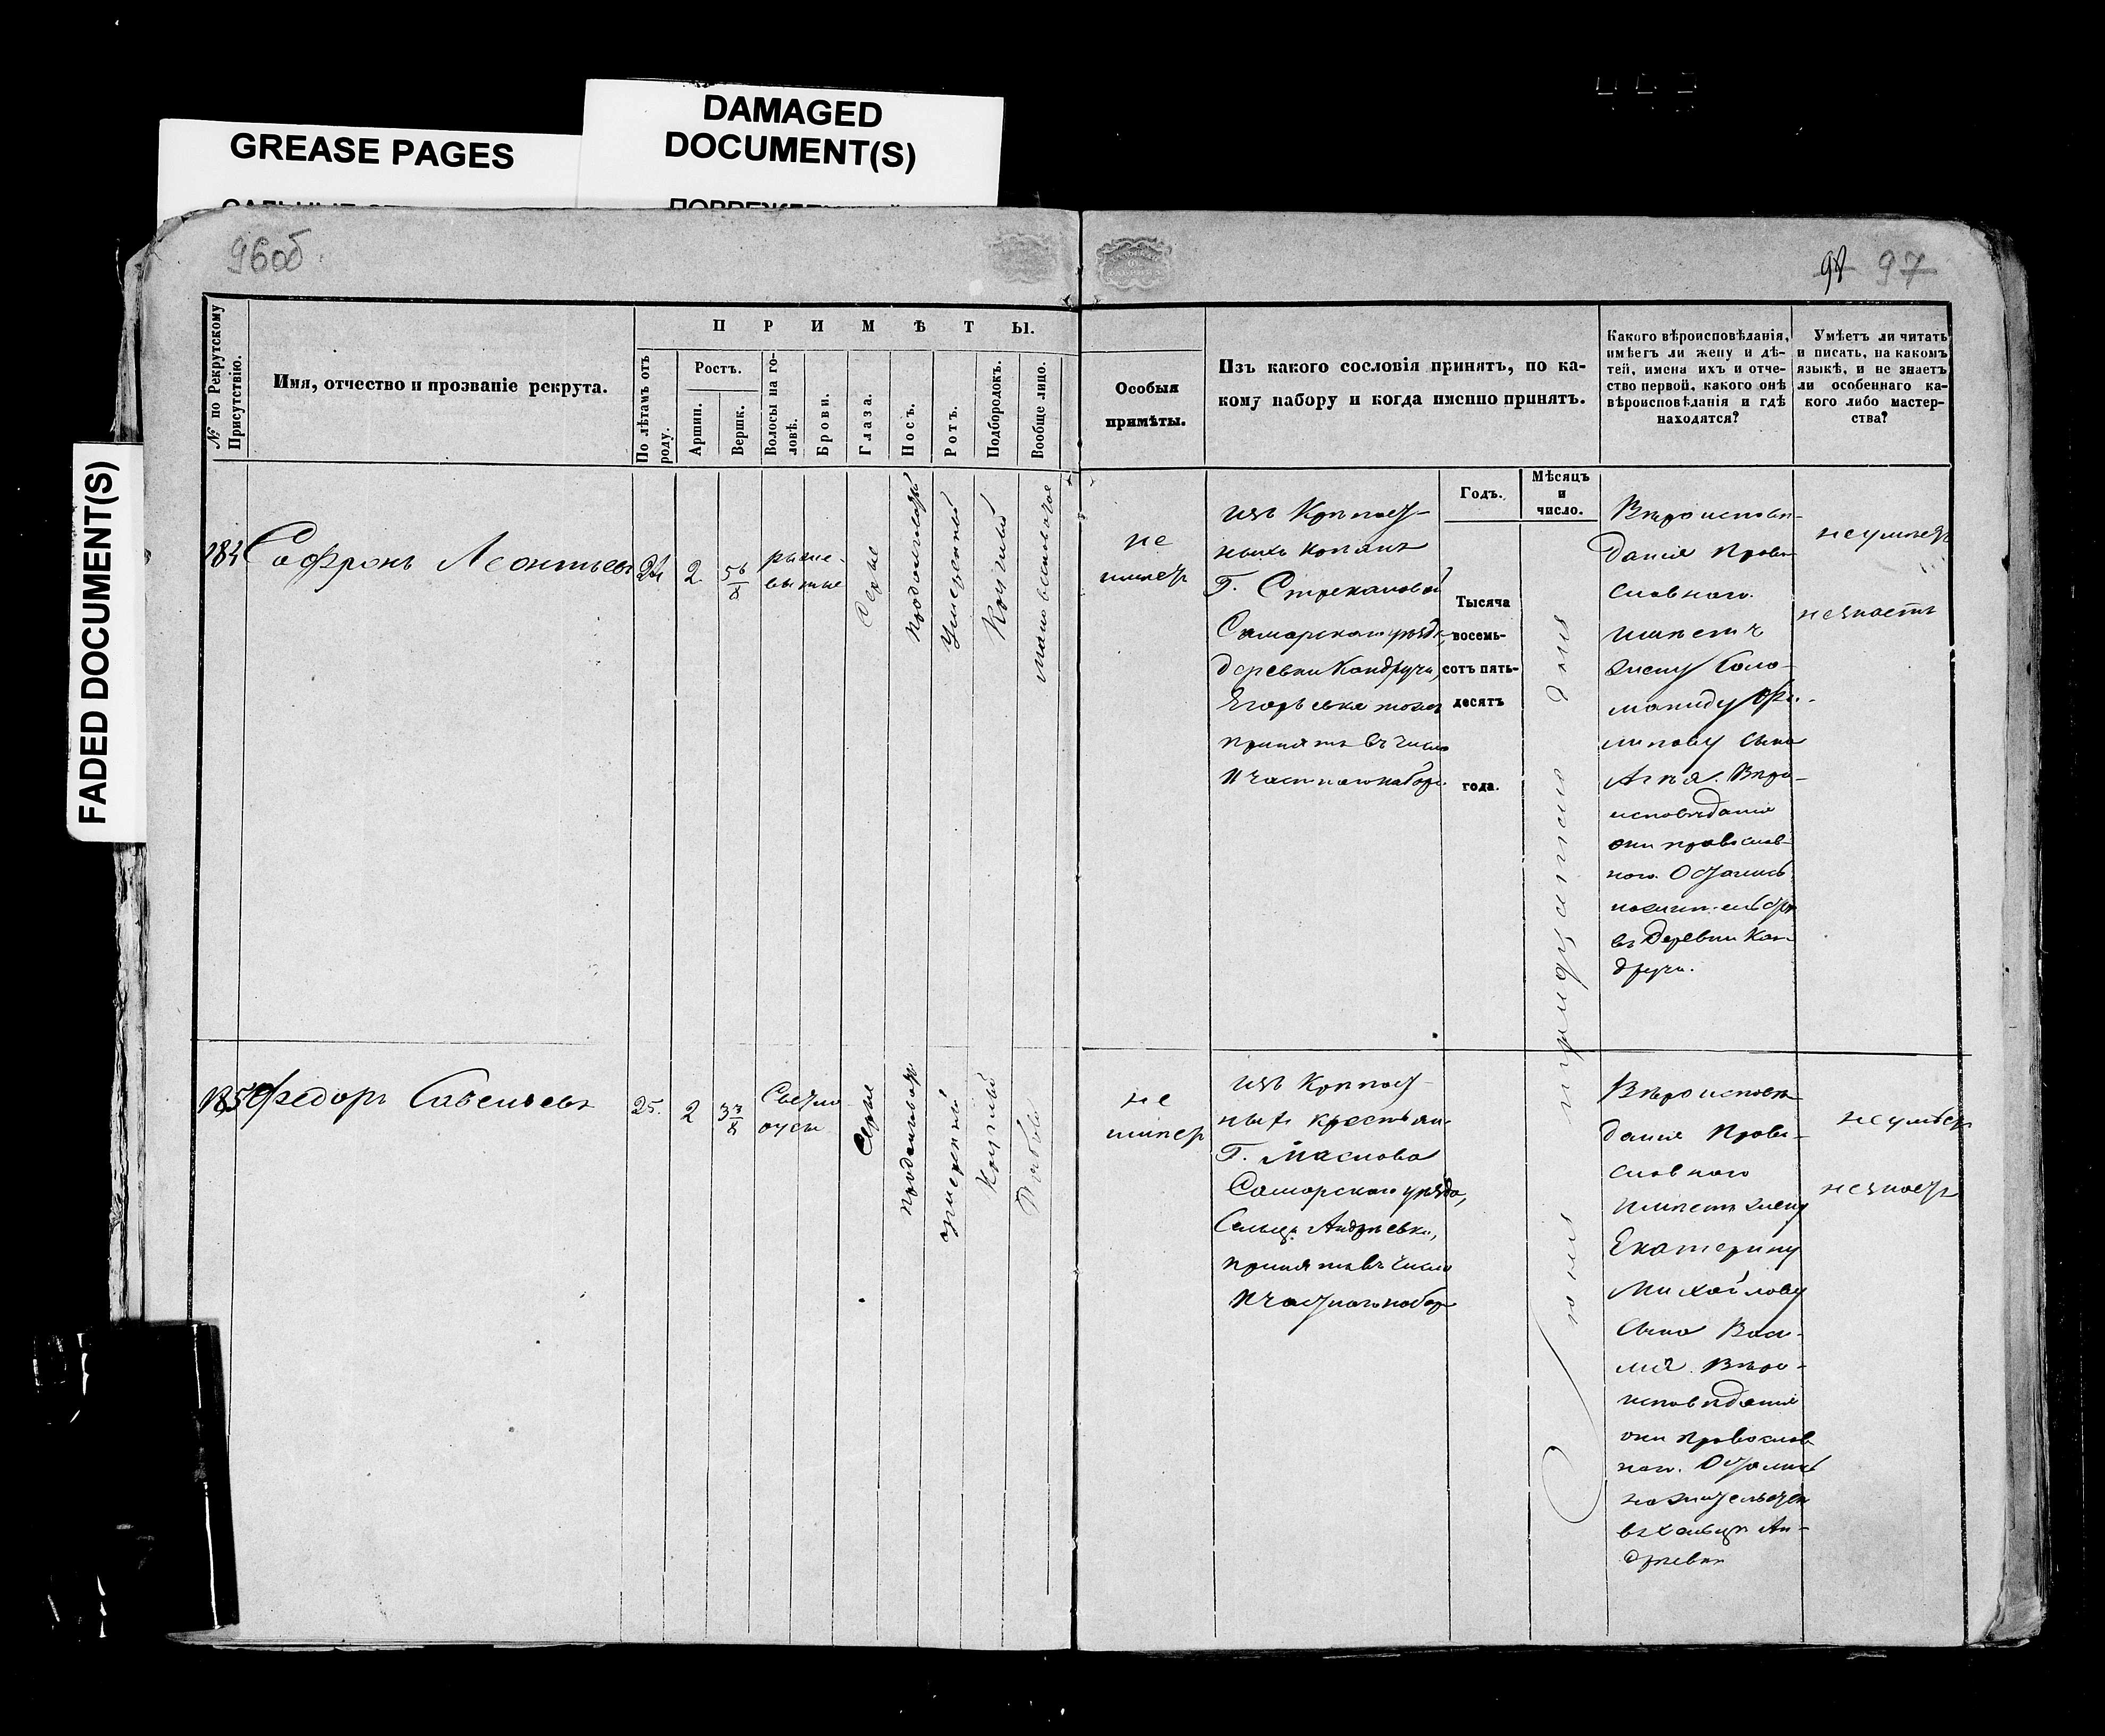 GREASE PAGES
DAMAGED
DOCUMENT(S)
FADED DOCUMENT(S)
96об
97
№ по Рекрутскому Присутствію.
Имя, отчество и прозваніе рекрута.
ПРИМѢТЫ.
По лѣтамъ отъ роду.
Ростъ.
Аршин.
Вершк.
Волосы на головѣ.
Брови.
Глаза.
Носъ.
Ротъ.
Подбородокъ.
Вообще лицо.
Особыя
примѣты.
Изъ какого сословія принятъ, по ка-
кому набору и когда именно принятъ.
Какого вѣроисповѣданія,
имѣетъ ли жену и дѣ-
тей, имена ихъ и отче-
ство первой, какого онѣ
вѣроисповѣданія и гдѣ
находятся?
Умѣетъ ли читать
и писать, на какомъ
языкѣ, и не знаетъ
ли особеннаго ка-
кого либо мастер-
ства?
Годъ.
Мѣсяцъ
и
число.
184
Софронъ Леонтьевъ
2
Серые
продолговатый
Умеренный
Круглый
не
имеет
изъ Крепост-
ныхъ
Г. Стрекаловой
Самарскаго уезда,
деревни Кондручи,
Егорьевка тожъ
принятъ въ число
Частнаго набора
Тысяча
восемь-
сотъ пять-
десятъ
года.
Вероиспове-
дания Право-
славного
имеетъ
жену Соло-
маниду
сына
Веро-
исповедания
они православ-
ного. Остались
въ Деревни Кон-
дручи.
неумеет
незнаетъ
185
Федоръ Савельевъ
25.
2
Светло
русы
Серые
продолговат
умеренный
Круглый
Рябое
не
имеет
изъ Крепост-
ныхъ крестьян
Г. Маслова
Самарскаго уезда,
Сельца Андреевки,
принятъ въ число
Частнаго набора
Вероиспове-
дания Право-
славного
имеетъ жену
Екатерину
Михайлову
сына Васи-
лия. Веро-
исповедания
они Православ
ного. Остались
на жительстве
въ сельце Ан-
дреевки
неумеет
незнает